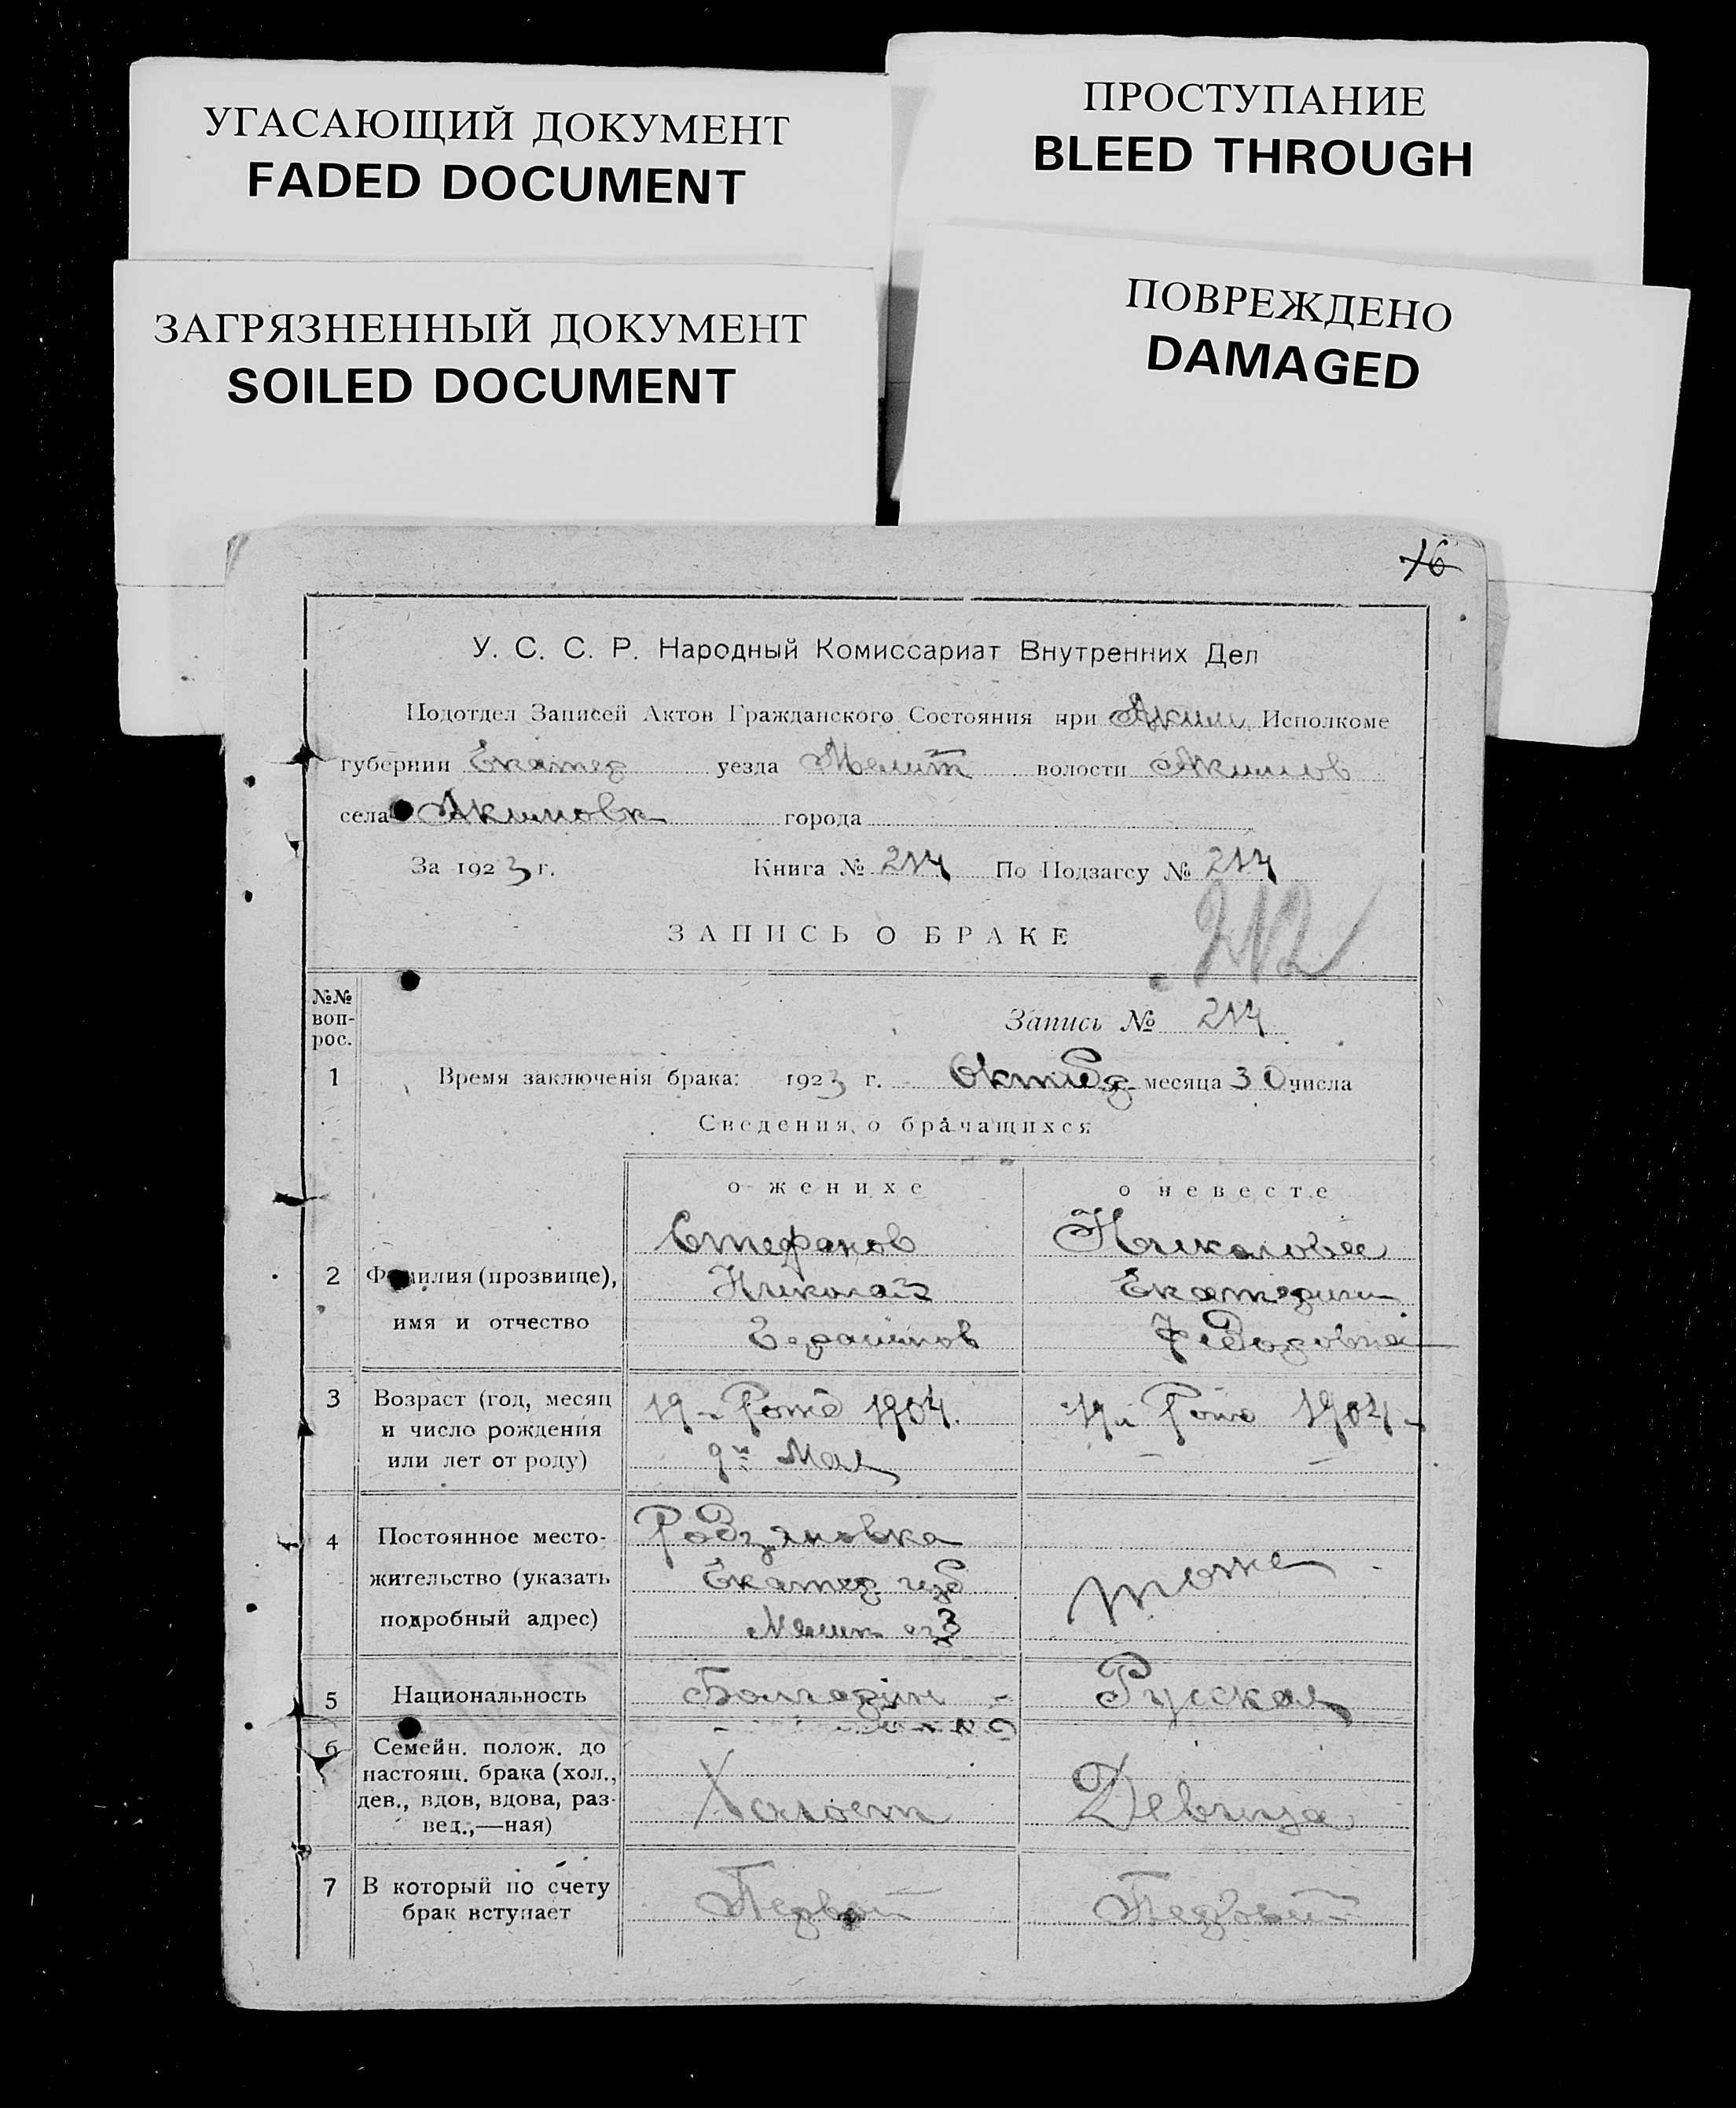 УГАСАЮЩИЙ ДОКУМЕНТ
FADED DOCUMENT
ПРОСТУПАНИЕ
BLEED THROUGH
ЗАГРЯЗНЕННЫЙ ДОКУМЕНТ
SOILED DOCUMENT
ПОВРЕЖДЕНО
DAMAGED
16
У. С. С. Р. Народный Комиссариат Внутренних Дел
Подотдел Записей Актов Гражданского Состояния при Аким Исполкоме
губернии Екатер уезда Мелит волости Акимов
села Акимовк города
За 1923 г. Книга № 214 По Подзагсу № 214
ЗАПИСЬ О БРАКЕ 212
№№ воп-рос.
Запись № 214
1 Время заключенія брака: 1923 г. Октяб месяца 30 числа
Сведения о брачащихся
о женихе о невесте
2 Фамилия (прозвище),
имя и отчество
Стефанов
Николай
Герасимов
Николова
Екатерина
Федоровна
3 Возраст (год, месяц
и число рождения
или лет от роду)
19 л Рожд 1904.
9го Мая
19 л Рожд 1904
4 Постоянное место-
жительство (указать
подробный адрес)
Родзяновка
Екатер губ
Мелит уез
тоже
5 Национальность Болгарин Русская
6 Семейн. полож. до
настоящ. брака (хол.,
дев., вдов, вдова, раз-
вед.,—ная)
Холост Девица
7 В который по счету
брак вступает
Первой Первый